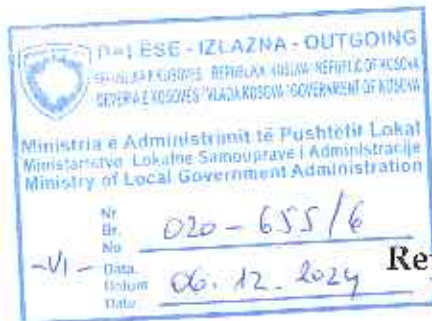 DALËSE - IZLAZNA - OUTGOING
REPUBLIKA E KOSOVËS REPUBLIKA KOSOVA REPUBLIC OF KOSOVA
QEVERIA E KOSOVËS VLADA KOSOVA GOVERNMENT OF KOSOVA
Ministria e Administrimit të Pushtetit Lokal
Ministarstvo Lokalne Samouprave i Administracije
Ministry of Local Government Administration
Nr
Br.
No
020-655/6
-VI-
Data
Datum
Date
06.12.2024
Re